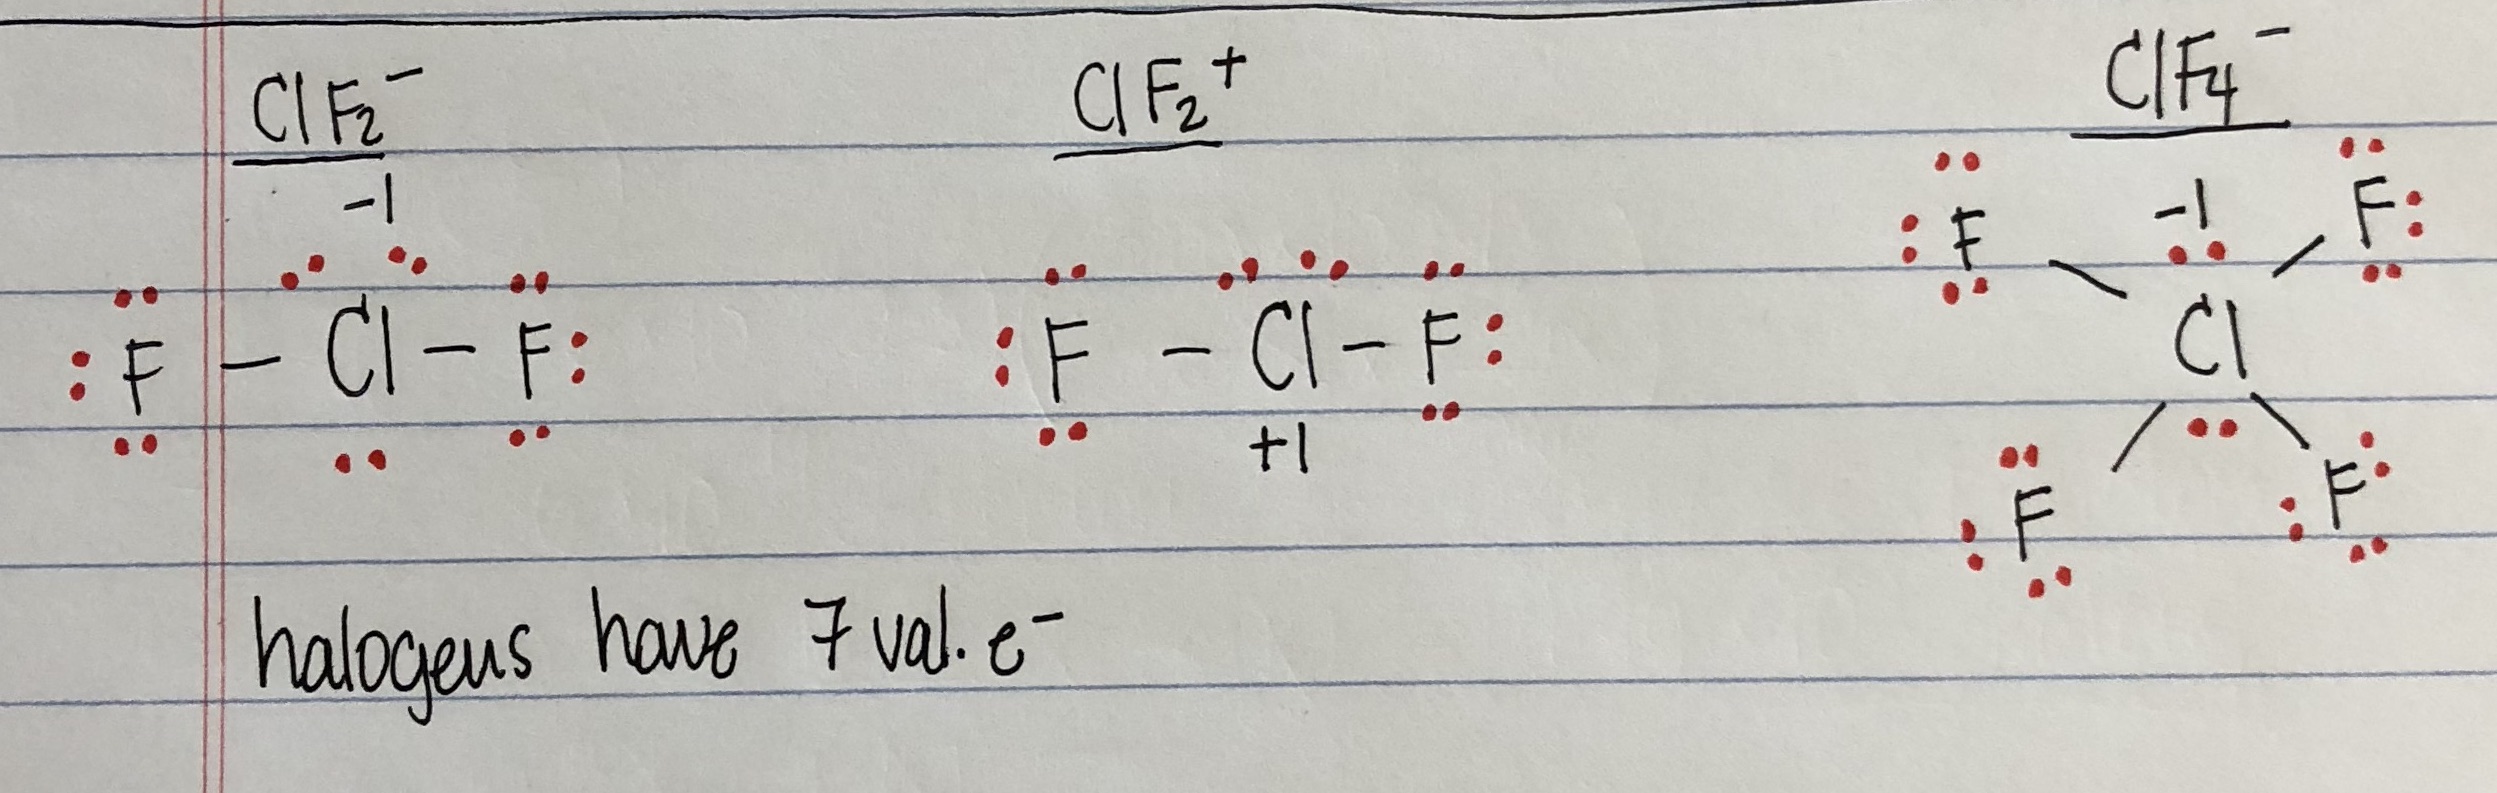 ClF₂⁻ ClF₂⁺ ClF₄⁻
-1
F - Cl - F
F - Cl - F
+1
F -1 F
Cl
F F
halogens have 7 val. e⁻